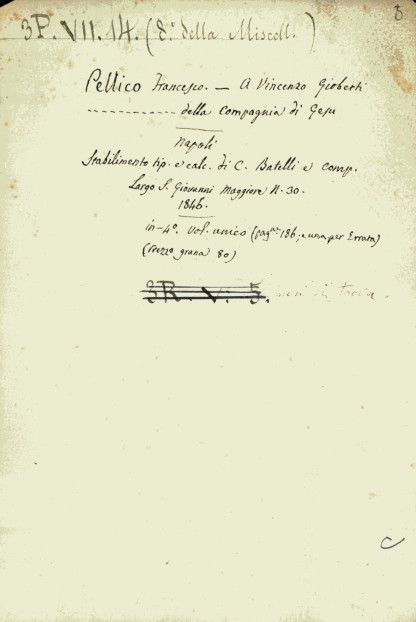 3P. VII. 14. (8.° della Miscell.)
Pellico Francesco. — A Vincenzo Gioberti
------------- della Compagnia di Gesu
Napoli
Stabilimento tip. e calc. di C. Batelli e Comp.
Largo S. Giovanni Maggiore N. 30.
1846.
in-4°. vol. unico (pag.ne 186, e una per Errata)
(Prezzo grana 80)
3R. V. 5.
C